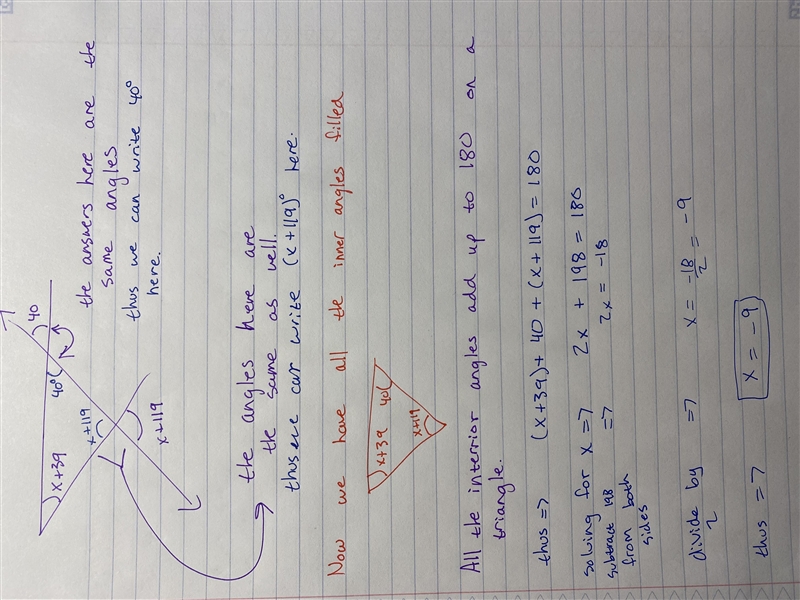 40
40°
x+39
x+119
x+119
the answers here are the
same angles
thus we can write 40°
here.
the angles here are
the same as well.
thus we can write (x+119)° here.
Now we have all the inner angles filled
x+39
40
x+119
All the interrior angles add up to 180 on a
triangle.
thus => (x+39) + 40 + (x+119) = 180
solving for x => 2x + 198 = 180
subtract 198 => 2x = -18
from both
sides
divide by 2 => x = -18/2 = -9
thus => x = -9